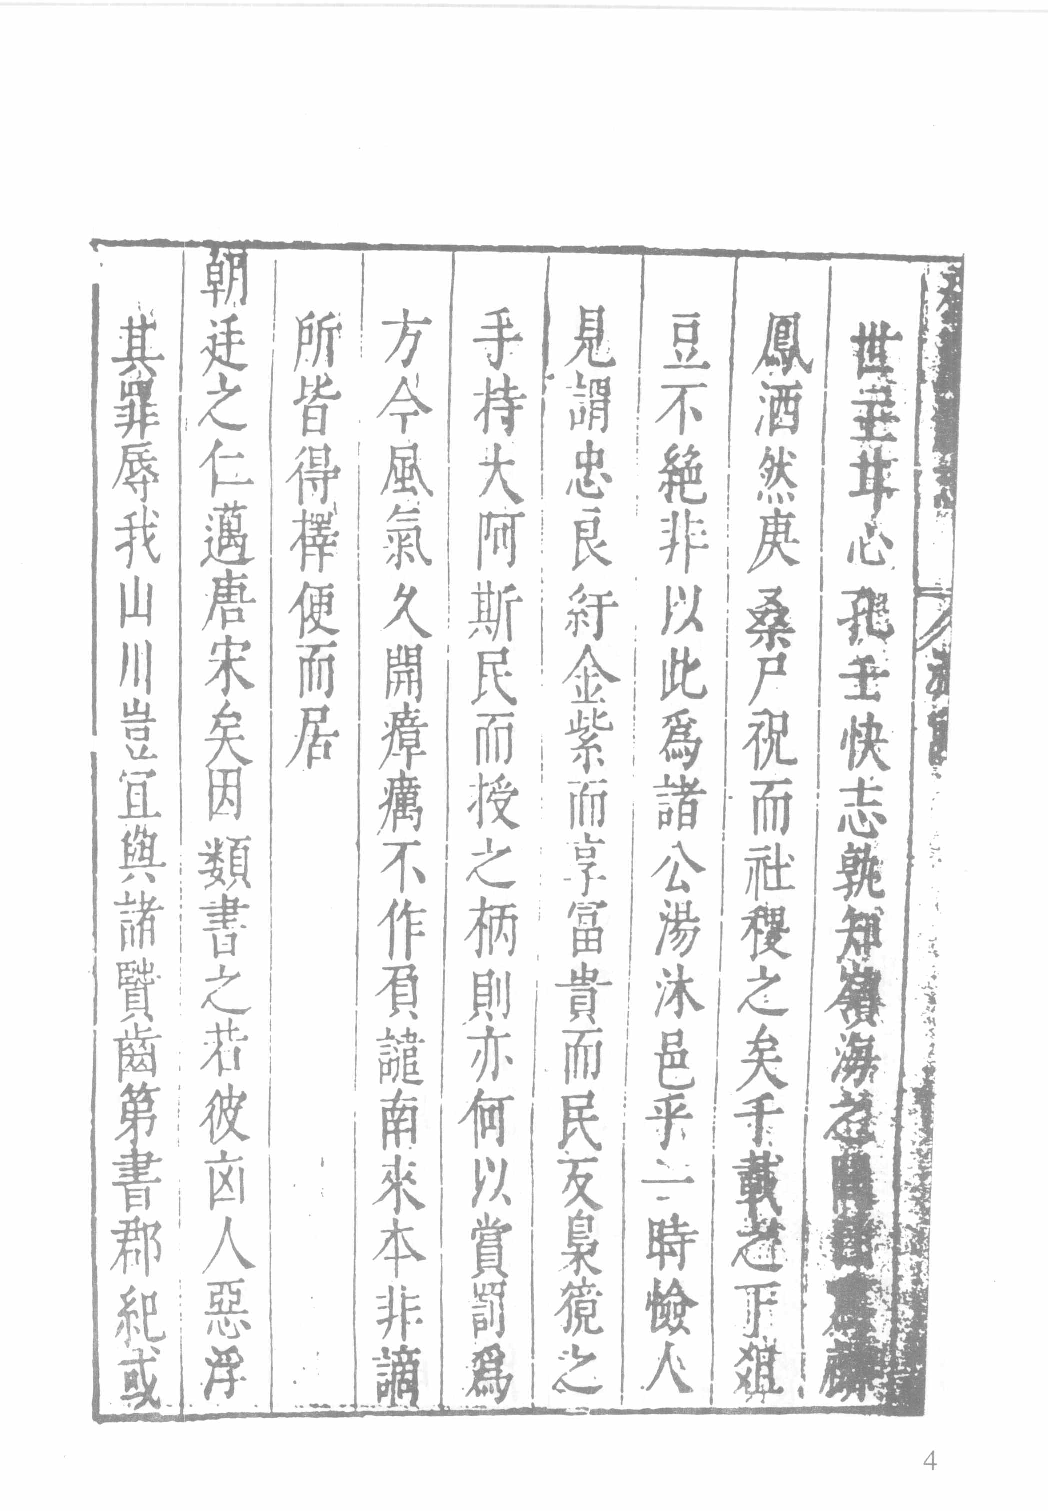 世主甘心孔壬快志孰知嶺海之間
鳳洒然庚桑尸祝而社稷之矣千載之下俎
豆不絶非以此爲諸公湯沐邑乎一時憸人
見謂忠良紆金紫而享富貴而民反梟獍之
手持大阿斯民而授之柄則亦何以賞罰爲
方今風氣久開瘴癘不作負譴南來本非謫
所皆得擇便而居
朝廷之仁邁唐宋矣因類書之若彼凶人惡浮
其罪辱我山川豈宜與諸賢齒第書郡紀或
4